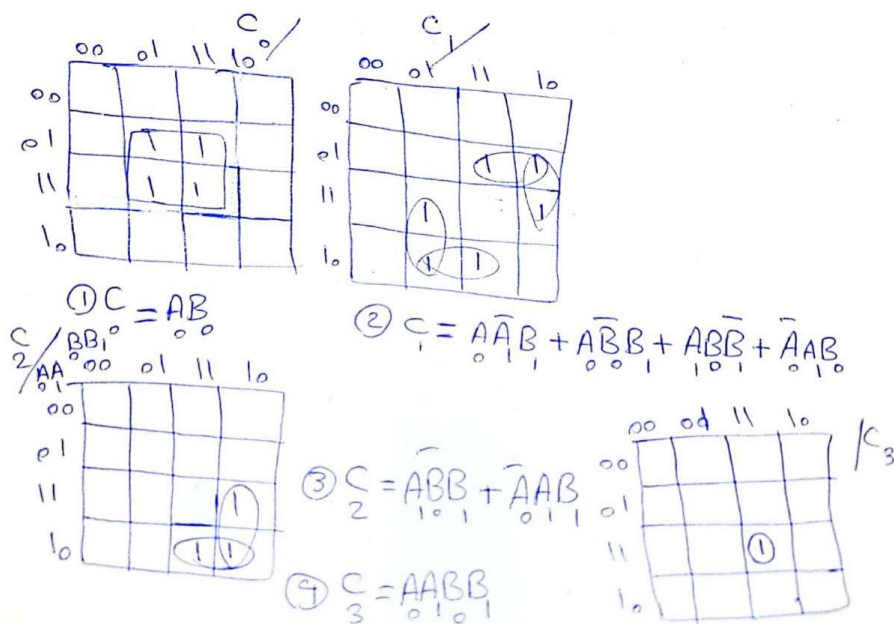 C0/
00 01 11 10
00
01 1 1
11 1 1
10
C1/
00 01 11 10
00
01 1 1
11 1 1
10 1 1
① C0 = A0B0
② C1 = A0Ā1B1 + A0B̄0B1 + A1B0B̄1 + Ā0A1B0
C2/ B0B1
A0A1 00 01 11 10
00
01
11 1
10 1 1
③ C2 = A1B̄0B1 + Ā0A1B1
/C3
00 01 11 10
00
01
11 1
10
④ C3 = A0A1B0B1